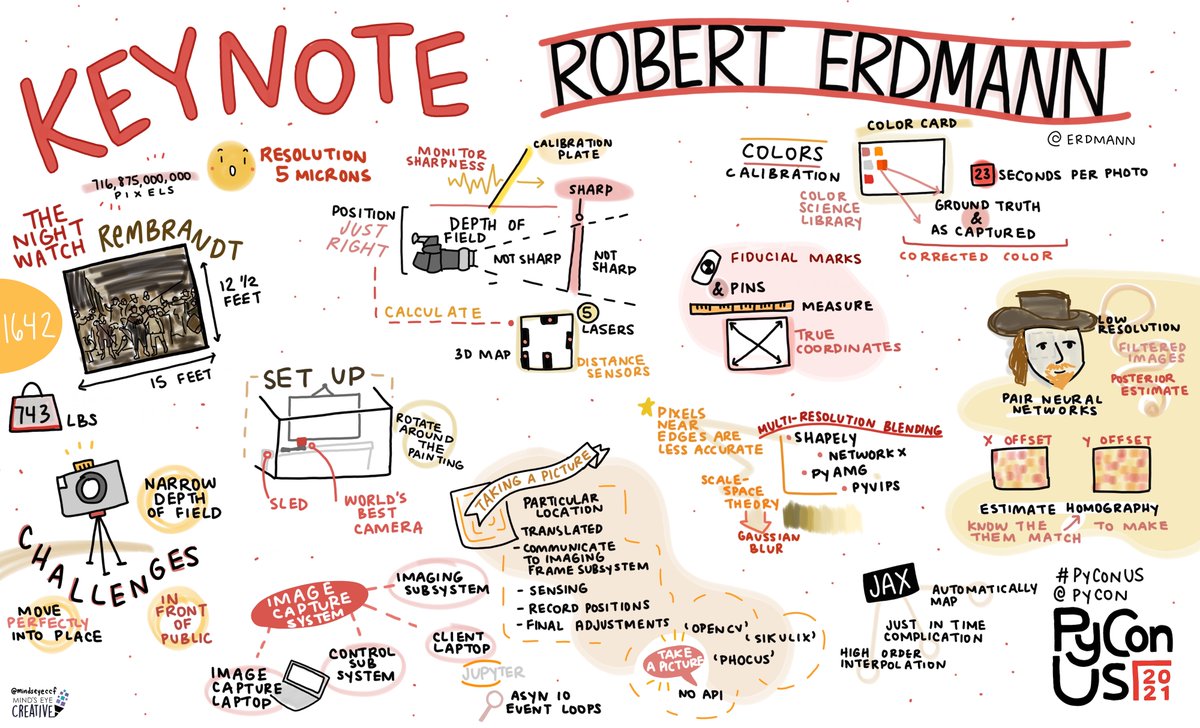 KEYNOTE
ROBERT ERDMANN
@ERDMANN
716,875,000,000
PIXELS
RESOLUTION
5 MICRONS
THE
NIGHT
WATCH
REMBRANDT
12 1/2
FEET
15 FEET
1642
743
LBS
MONITOR
SHARPNESS
CALIBRATION
PLATE
SHARP
POSITION
JUST
RIGHT
DEPTH OF
FIELD
NOT SHARP
NOT
SHARP
CALCULATE
3D MAP
5
LASERS
DISTANCE
SENSORS
COLORS
CALIBRATION
COLOR CARD
23 SECONDS PER PHOTO
COLOR
SCIENCE
LIBRARY
GROUND TRUTH
&
AS CAPTURED
CORRECTED COLOR
FIDUCIAL MARKS
& PINS
MEASURE
TRUE
COORDINATES
LOW
RESOLUTION
FILTERED
IMAGES
POSTERIOR
ESTIMATE
PAIR NEURAL
NETWORKS
X OFFSET
Y OFFSET
ESTIMATE HOMOGRAPHY
KNOW THE TO MAKE
THEM MATCH
SET UP
ROTATE
AROUND
THE
PAINTING
SLED
WORLD'S
BEST
CAMERA
NARROW
DEPTH
OF FIELD
CHALLENGES
MOVE
PERFECTLY
INTO PLACE
IN
FRONT
OF
PUBLIC
PIXELS
NEAR
EDGES ARE
LESS ACCURATE
MULTI-RESOLUTION BLENDING
• SHAPELY
• NETWORKX
• PYAMG
• PYVIPS
SCALE-
SPACE
THEORY
GAUSSIAN
BLUR
TAKING A PICTURE
PARTICULAR
LOCATION
TRANSLATED
- COMMUNICATE
TO IMAGING
FRAME SUBSYSTEM
- SENSING
- RECORD POSITIONS
- FINAL ADJUSTMENTS
TAKE
A PICTURE
'OPENCV'
'SIKULIX'
'PHOCUS'
NO API
IMAGE
CAPTURE
SYSTEM
IMAGING
SUBSYSTEM
CLIENT
LAPTOP
CONTROL
SUB
SYSTEM
IMAGE
CAPTURE
LAPTOP
JUPYTER
ASYN IO
EVENT LOOPS
JAX
AUTOMATICALLY
MAP
JUST IN TIME
COMPLICATION
HIGH ORDER
INTERPOLATION
#PYCONUS
@PYCON
PyCon
US
2021
@mindseyeccf
MIND'S EYE
CREATIVE